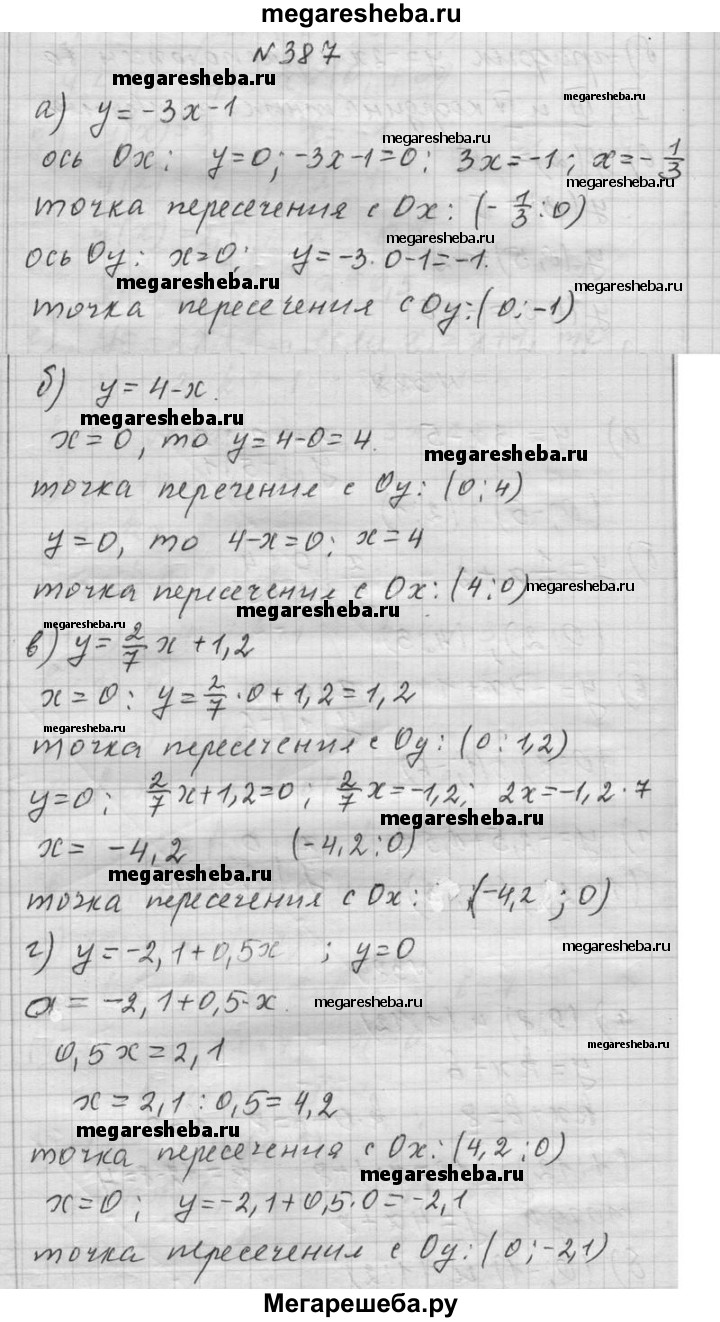 megaresheba.ru
N 387
megaresheba.ru
megaresheba.ru
а) y = -3x - 1
megaresheba.ru
ось Ox: y=0; -3x-1=0; 3x=-1; x=-1/3
megaresheba.ru
точка пересечения с Ox: (-1/3; 0)
megaresheba.ru
ось Oy: x=0; y=-3·0-1=-1.
megaresheba.ru
megaresheba.ru
точка пересечения с Oy: (0; -1)
б) y = 4-x.
megaresheba.ru
x=0, то y=4-0=4.
megaresheba.ru
точка перечения с Oy: (0; 4)
y=0, то 4-x=0; x=4
точка пересечения с Ox: (4; 0)
megaresheba.ru
megaresheba.ru
megaresheba.ru
в) y=2/7 x + 1,2
x=0: y=2/7·0+1,2=1,2
megaresheba.ru
точка пересечения с Oy: (0; 1,2)
y=0; 2/7x+1,2=0; 2/7x=-1,2; 2x=-1,2·7
megaresheba.ru
x= -4,2 (-4,2; 0)
megaresheba.ru
точка пересечения с Ox: (-4,2; 0)
г) y=-2,1+0,5x ; y=0
megaresheba.ru
0=-2,1+0,5·x.
megaresheba.ru
0,5x=2,1
megaresheba.ru
x=2,1:0,5=4,2
megaresheba.ru
точка пересечения с Ox: (4,2; 0)
megaresheba.ru
x=0; y=-2,1+0,5·0=-2,1
точка пересечения с Oy: (0; -2,1)
Мегарешеба.ру